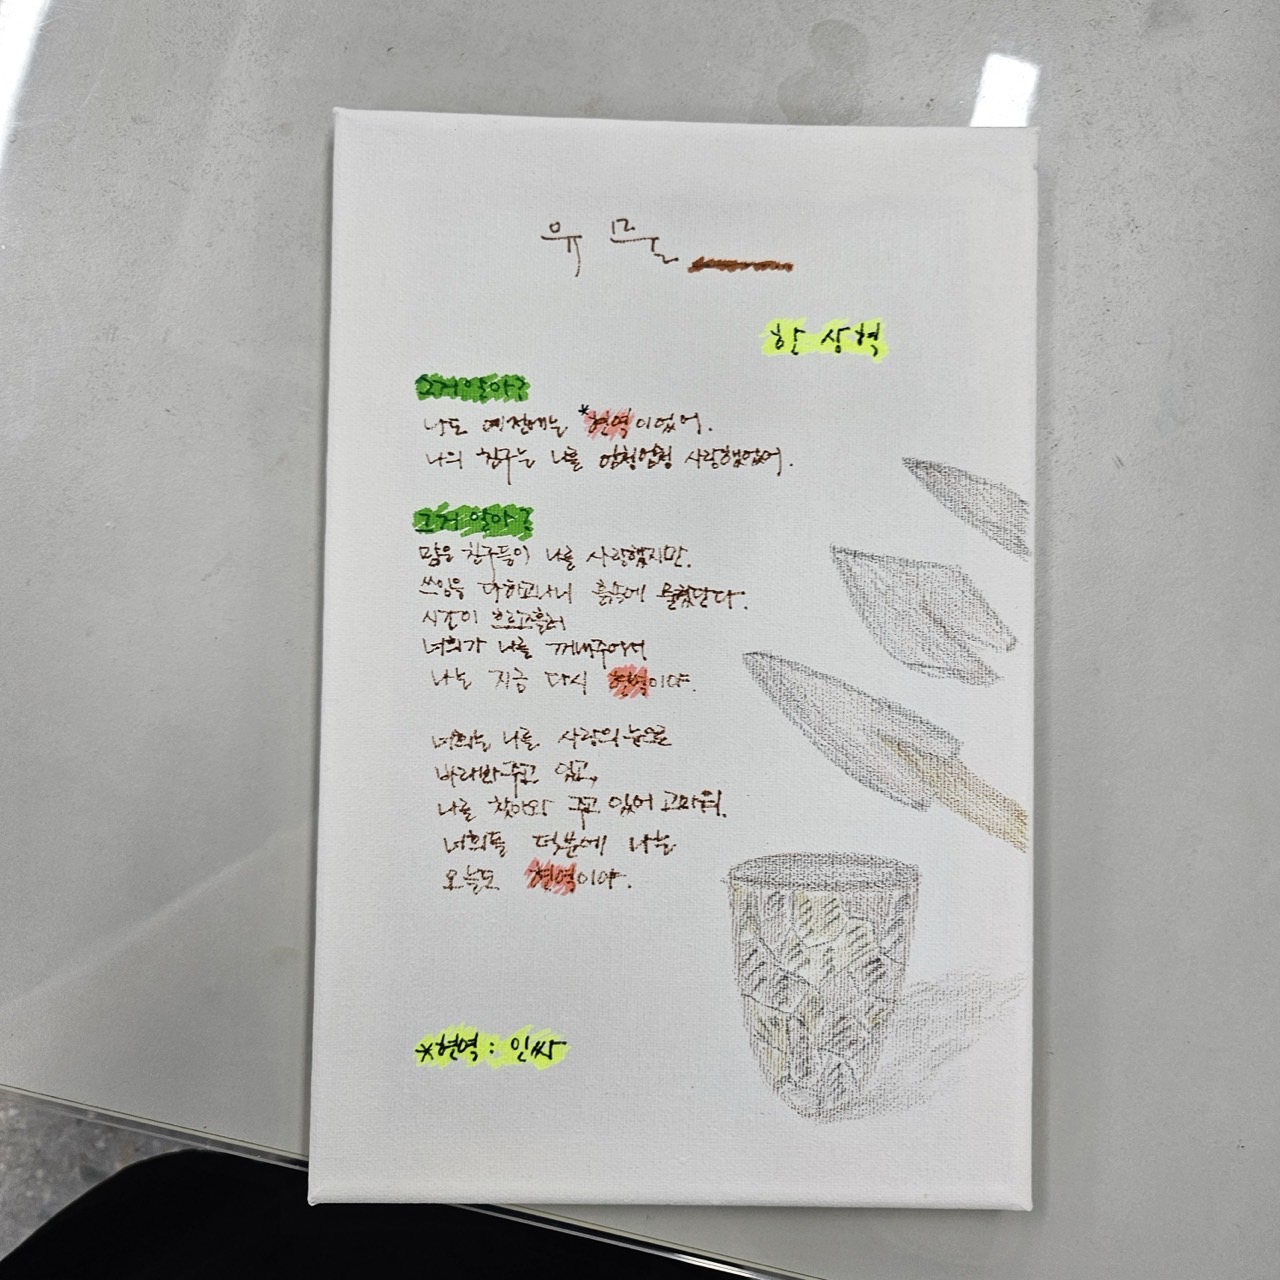 유물
한상혁
그거 알아?
나도 예전에는 *현역이었어.
나의 친구는 나를 엄청엄청 사랑했었어.
그거 알아?
많은 친구들이 나를 사랑했지만.
쓰임을 다하고나니 흙속에 묻혔단다.
시간이 흐르고흘러
너희가 나를 꺼내주어서
나는 지금 다시 현역이야.
너희는 나를 사랑의 눈으로
바라봐주고 있고,
나를 찾아와 주고 있어 고마워.
너희들 덕분에 나는
오늘도 현역이야.
*현역 : 인싸